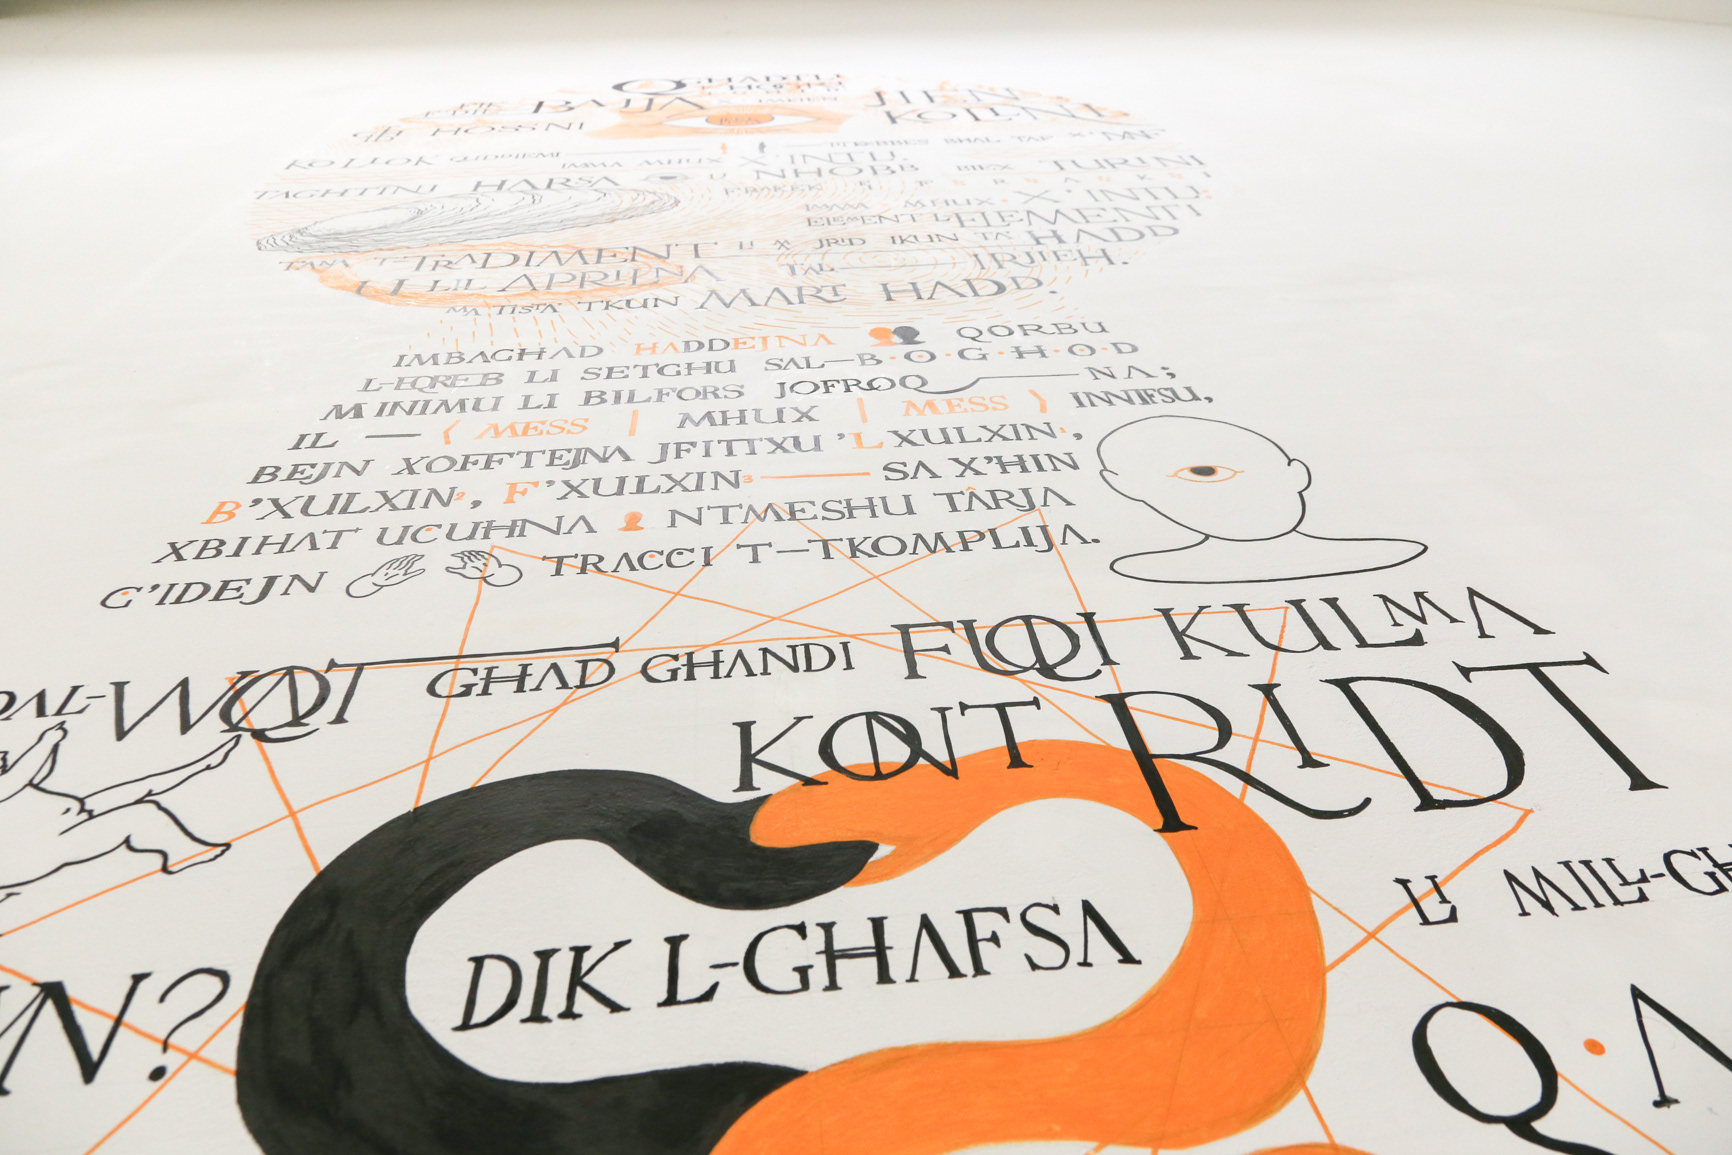 QGHADTU
BAJJA
JIEN
HOSSNI
KOLLOK QUDDIEMI IMMA MHUX X'INTIJ. BHAL TAF X'INT
TAGHTINI HARSA U NHOBB BIEX TURINI
IMMA MHUX X'INTIJ:
ELEMENT L-ELEMENTI
TRADIMENT LI JRID IKUN TA' HADD
U LIL APRILNA TAL IRJIEH.
MA TISTA' TKUN MART HADD.
IMBAGHAD HADDEJNA QORBU
L-EQREB LI SETGHU SAL–B·O·G·H·O·D
MINIMU LI BILFORS JOFROQNA;
IL — ( MESS | MHUX | MESS ) INNIFSU,
BEJN XOFFTEJNA JFITTXU 'L XULXIN¹,
B'XULXIN², F'XULXIN³ — SA X'HIN
XBIHAT UĊUĦNA NTMESHU TÂRJA
Ġ'IDEJN TRAĊĊI T-TKOMPLIJA.
DAL-WAQT GĦAD GĦANDI FUQI KULMA
KONT RIDT
LI MILL-GĦ
DIK L-GĦAFSA
N?
Q·A